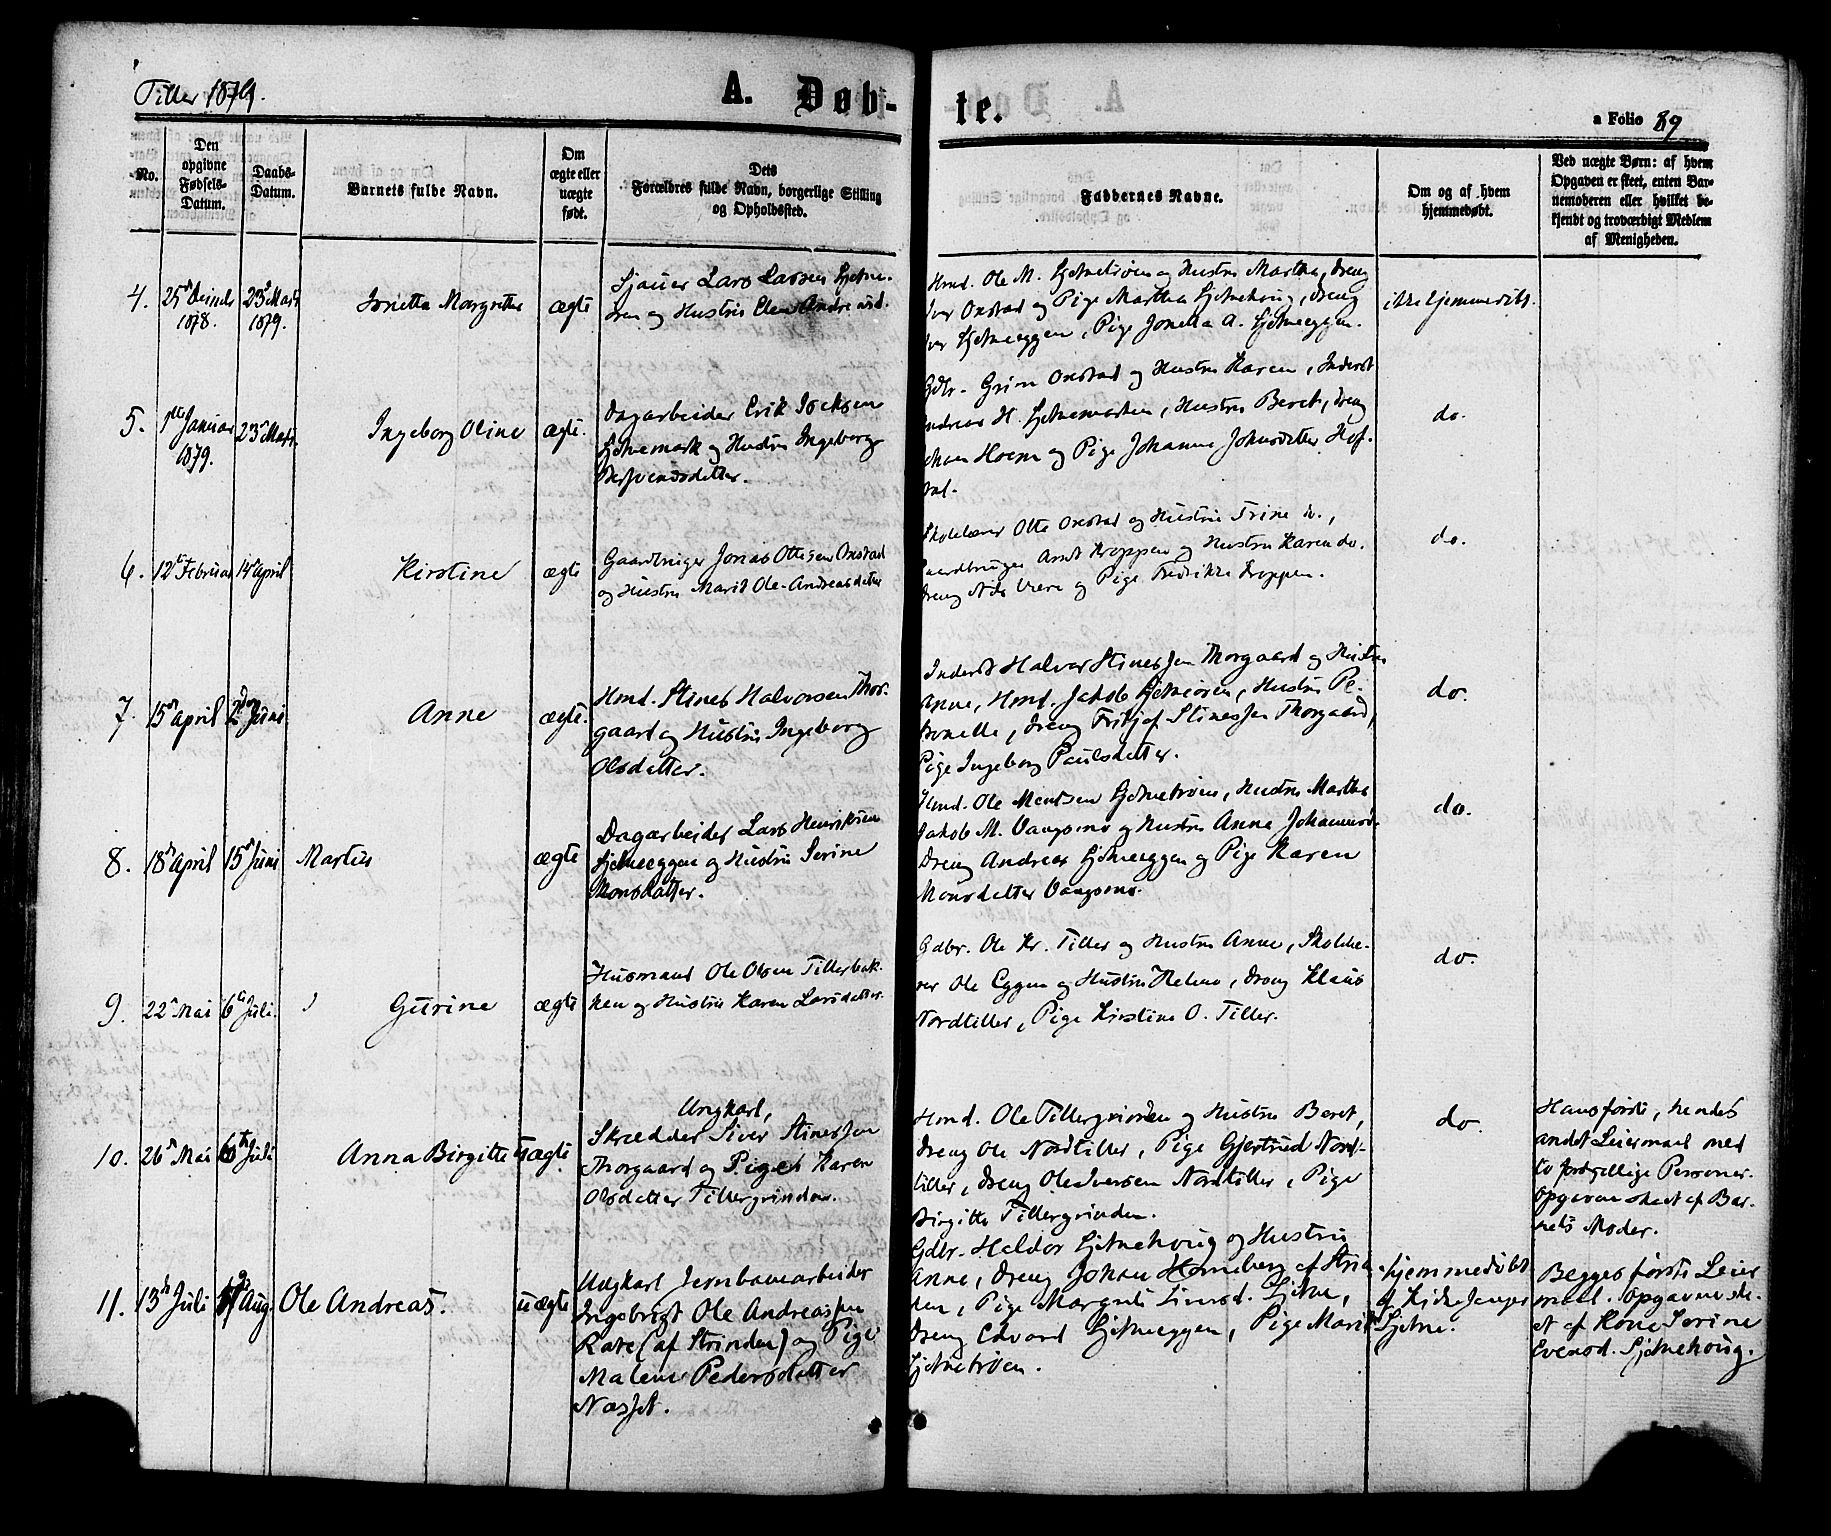 Tiller 1879.
A. Døb-
te.
a Folio 89
No.
Den
opgivne
Fødsels-
Datum.
Daabs-
Datum.
Barnets fulde Navn.
Om
ægte eller
uægte
født.
Dets
Forældres fulde Navn, borgerlige Stilling
og Opholdssted.
Faddernes Navne.
Om og af hvem
hjemmedøbt.
Ved uægte Børn: af hvem
Opgaven er skeet, enten Bar-
nemoderen eller hvilket be-
kjendt og troværdigt Medlem
af Menigheden.
4.
25de
1878.
23de Marts
1879.
Jonetta Margrethe
ægte
Sjauer Lars Larsen
og Hustru Elen
Hmd. Ole M. og Hustru Martha, Dreng
Onstad og Pige Martha Sjetnehoug, Dreng
Sjetneeggen, Pige Jonetta A. Sjetneeggen.
ikke hjemmedøbt.
5.
1ste Januar
1879.
23de Marts
Ingeborg Oline
ægte.
Dagarbeider Erik
Sjetnemark og Hustru Ingeborg
Gdbr. Grim Onstad og Hustru Karen, Inderst
Andreas H. Sjetnemarken, Hustru Beret, Dreng
Hoem og Pige Johanna Johnsdatter Hof-
do.
6.
12te Februar
14de April
Kirstine
ægte
Gaardbruger Jonas Ottesen Onstad
og Hustru Marit Ole-Andreasdatter
Skolelærer Otte Onstad og Hustru Trine do.,
Gaardbruger Arnt Kroppen og Hustru Karen do.
Dreng Nils og Pige Fredrikke Kroppen.
do.
7.
15de April
2den Juni
Anne
ægte.
Hmd. Stines Halvorsen Thor-
gaard og Hustru Ingeborg
Olsdatter.
Inderst Halvor Stinessen Thorgaard og Hustru
Anne, Hmd. Jakob Sjetneøren, Hustru Pe-
tronelle, Dreng Fritjof Stinessen Thorgaard,
Pige Ingeborg Paulsdatter.
do.
8.
18de April
15de Juni
Martin
ægte
Dagarbeider Lars Henriksen
Sjetneeggen og Hustru Serine
Monsdatter.
Hmd. Ole Mentsen Sjetnetrøen, Hustru Martha
Jakob M. Vangsmo og Hustru Anna Johannesd.
Dreng Andreas Sjetneeggen og Pige Karen
Monsdatter Vangsmo.
do.
9.
22de Mai
6te Juli.
Gurine
ægte
Husmand Ole Olsen Tillerbak-
ken og Hustru Karen Larsdatter.
Gdbr. Ole Kr. Tiller og Hustru Anne, Skolelæ-
rer Ole Eggen og Hustru Helene, Dreng Klaus
Nordtiller, Pige Kirstine O. Tiller.
do.
10.
26de Mai
6te Juli
Anna Birgitte
uægte
Ungkarl,
Skrædder Siver Stinessen
Thorgaard og Pige Karen
Olsdatter Tillergrinden.
Hmd. Ole Tillergrinden og Hustru Beret,
Dreng Ole Nordtiller, Pige Gjertrud Nord-
tiller, Dreng Ole Iversen Nordtiller, Pige
Birgitte Tillergrinden.
do.
Hans første, hendes
andet Leiermaal med
to forskjellige Personer.
Opgaven skeet af Bar-
nets Moder.
11.
13de Juli
17de Aug.
Ole Andreas.
uægte
Ungkarl Jernbanearbeider
Ingebrigt Ole Andreassen
Rate (af Strinden) og Pige
Malene Pedersdatter
Gdbr. Haldor Sjetnehoug og Hustru
Anne, Dreng Johan af Strin-
den, Pige Margrete Sjetne,
Dreng Edvard Sjetneeggen, Pige Marit
Sjetnetrøen.
hjemmedøbt
af
Sjetne.
Begges første Leier-
maal. Opgaven ske-
et af Kone Serine
Evensd. Sjetnehoug.